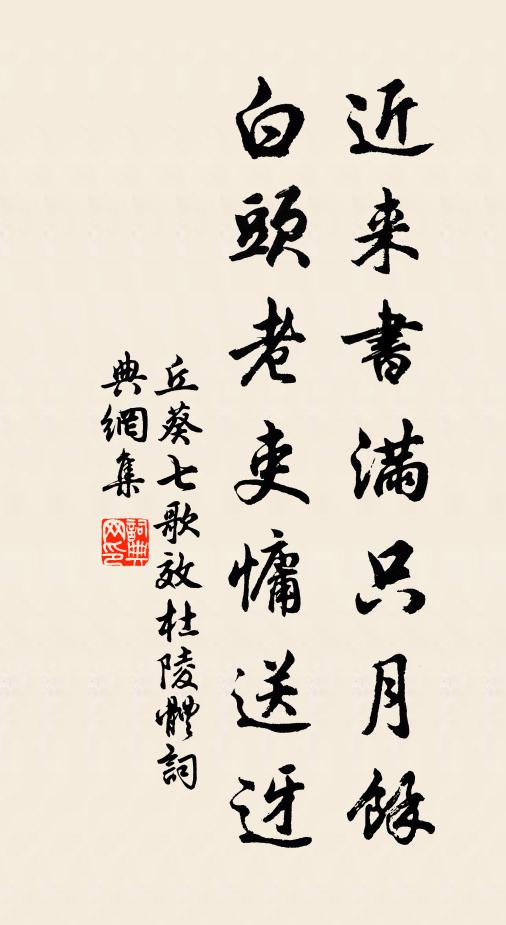 近来書满只月餘
白頭老吏慵送迓
丘葵七歌效杜陵體詞
典網集
詞典网印